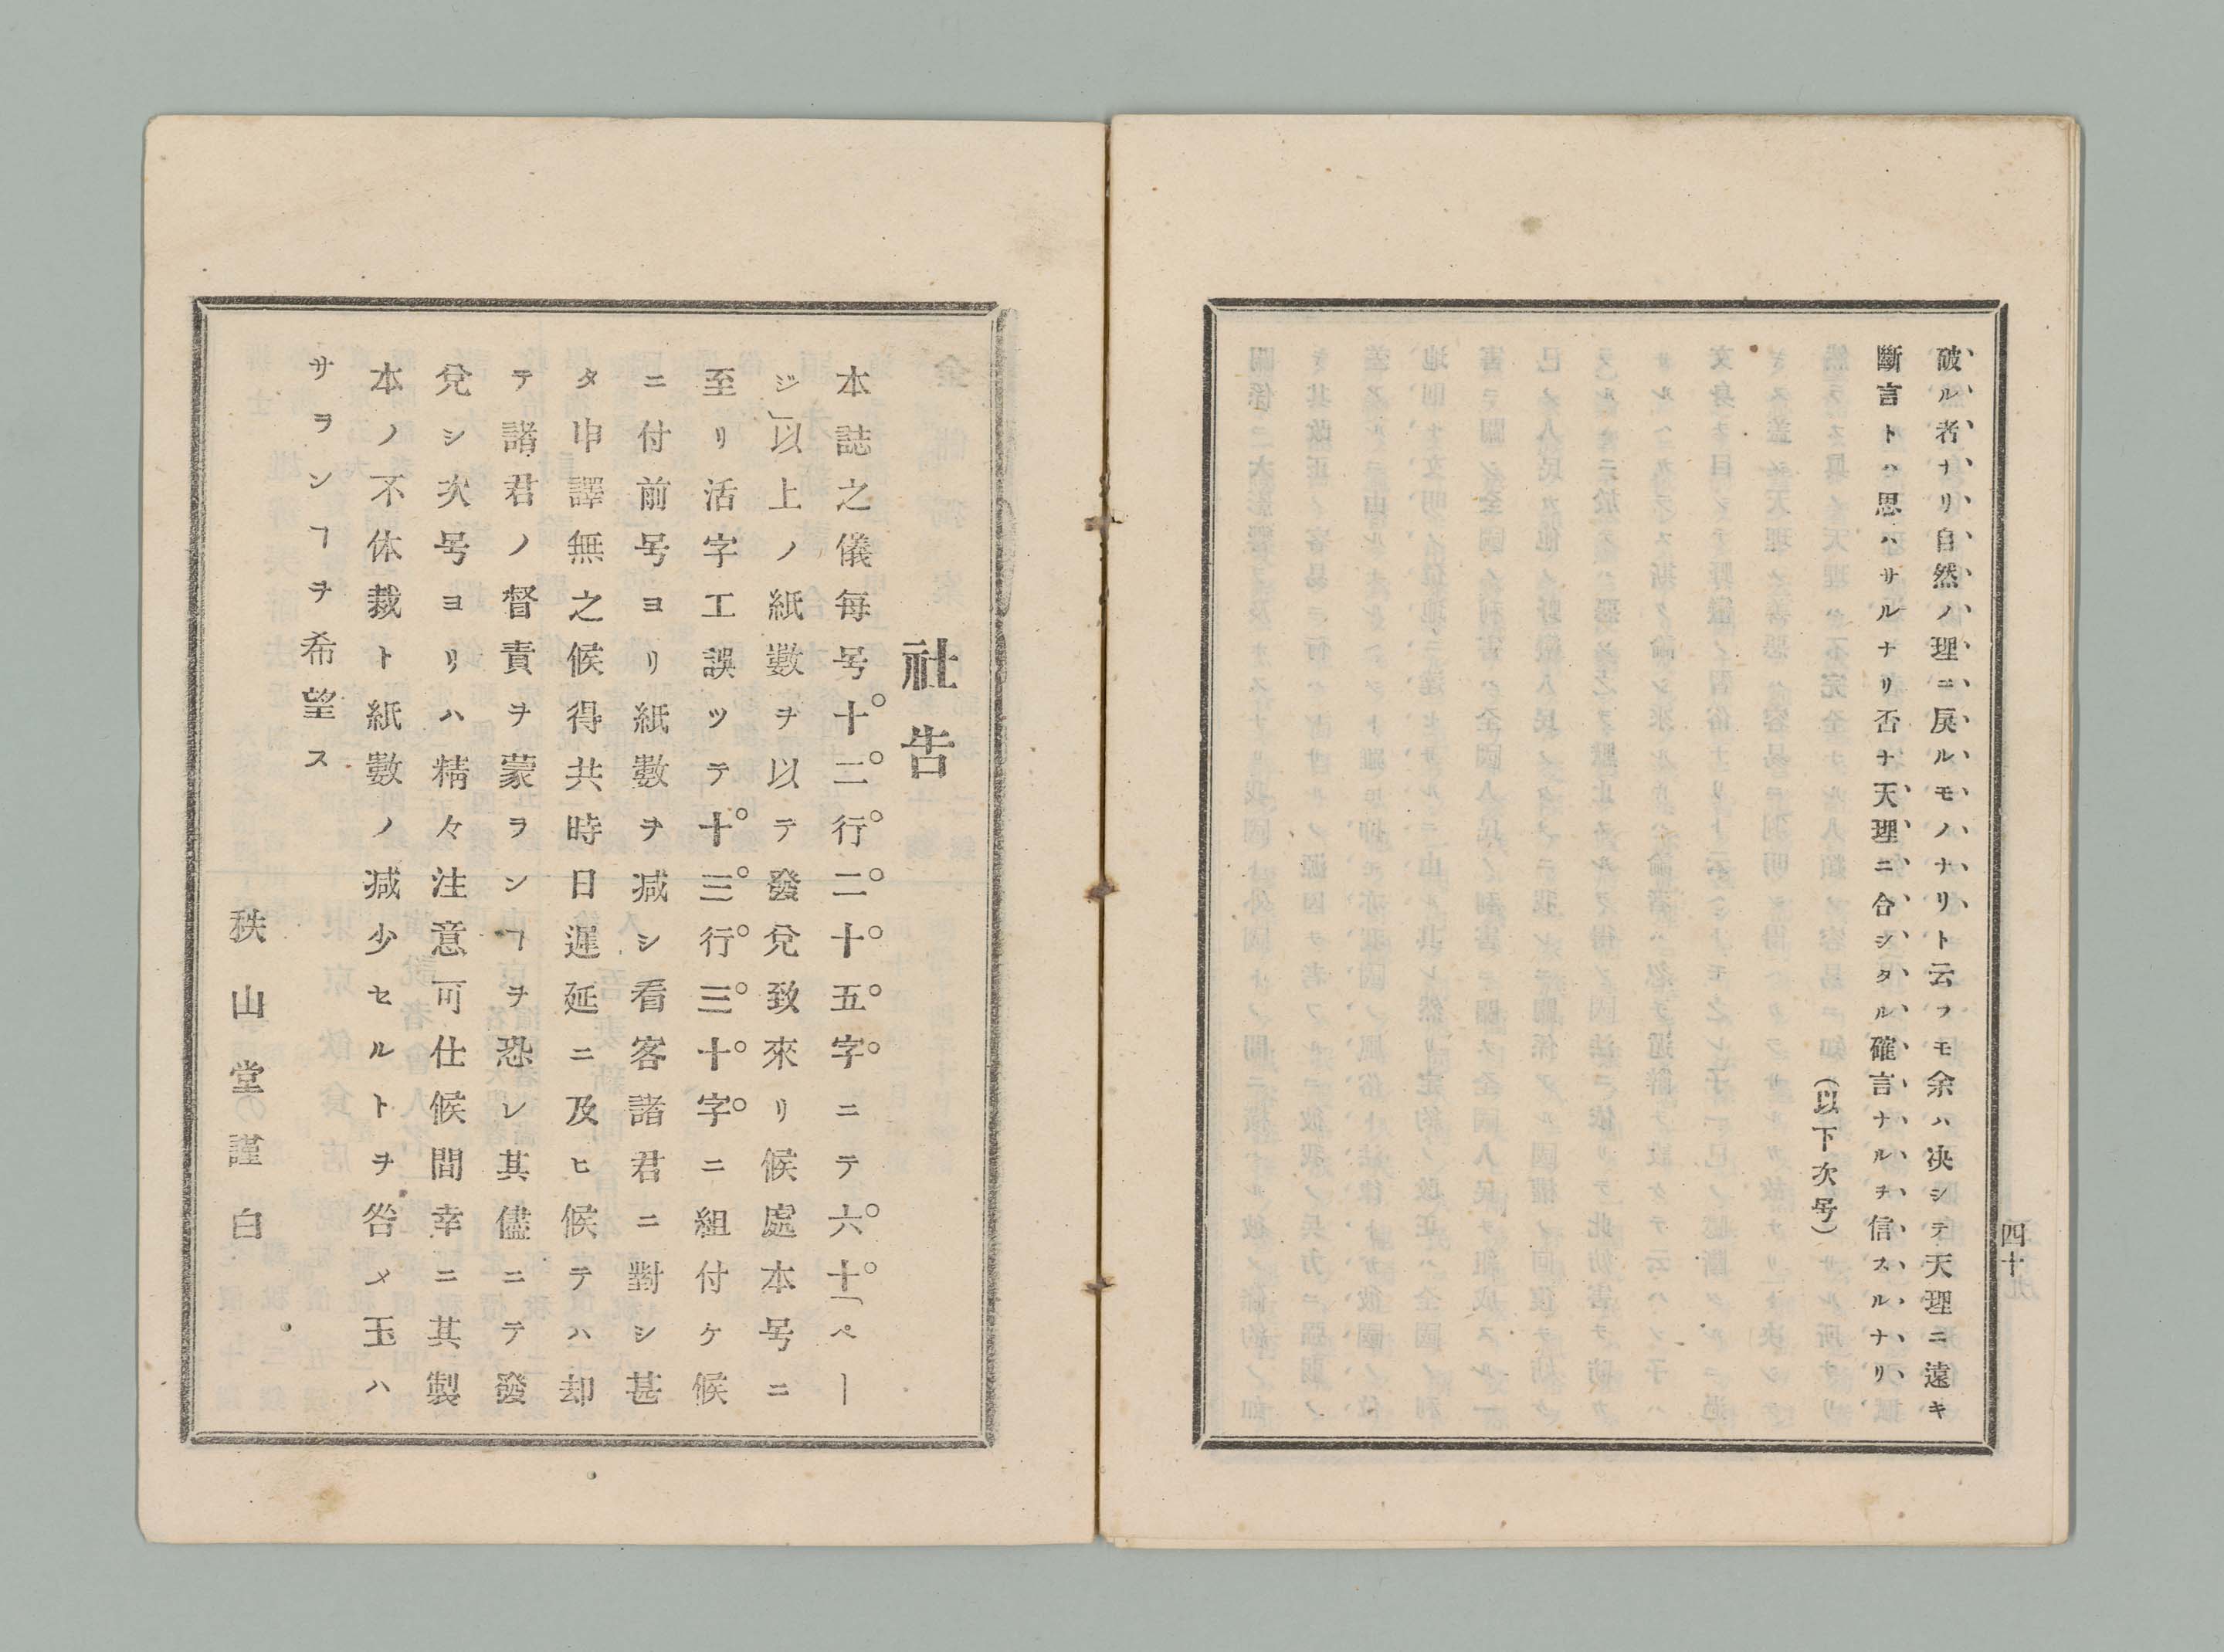 破ル者ナリ自然ノ理ニ戻ルモノナリト云フモ余ハ决シテ天理ニ遠キ
斷言トハ思ハサルナリ否ナ天理ニ合シタル確言ナルヲ信スルナリ
(以下次号)
四十
社告
本誌之儀每号十二行二十五字ニテ六十「ペー
ジ」以上ノ紙數ヲ以テ發兌致來リ候處本号ニ
至リ活字工誤ツテ十三行三十字ニ組付ケ候
ニ付前号ヨリ紙數ヲ减シ看客諸君ニ對シ甚
タ申譯無之候得共時日遲延ニ及ヒ候テハ却
テ諸君ノ督責ヲ蒙ランヿヲ恐レ其儘ニテ發
兌シ次号ヨリハ精々注意可仕候間幸ニ其製
本ノ不体裁ト紙數ノ减少セルトヲ咎メ玉ハ
サランヿヲ希望ス
秩山堂謹白